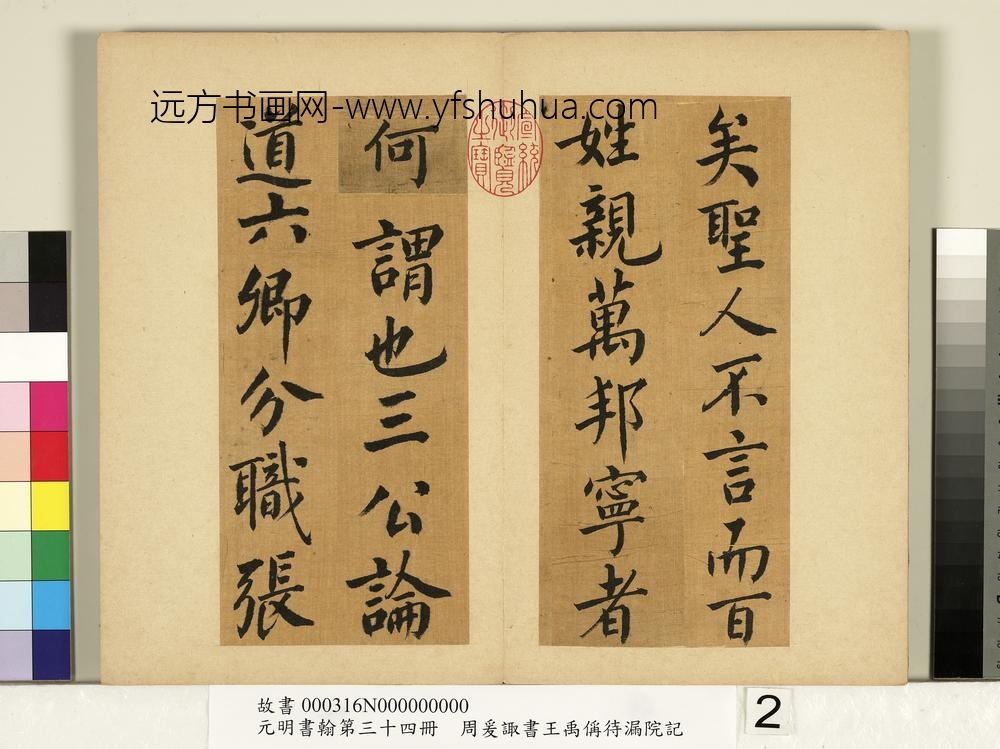 远方书画网-www.yfshuhua.com
矣聖人不言而百
姓親萬邦寧者
何謂也三公論
道六卿分職張
宣統御覽之寶
故書 000316N000000000
元明書翰第三十四冊 周爰諏書王禹偁待漏院記
2